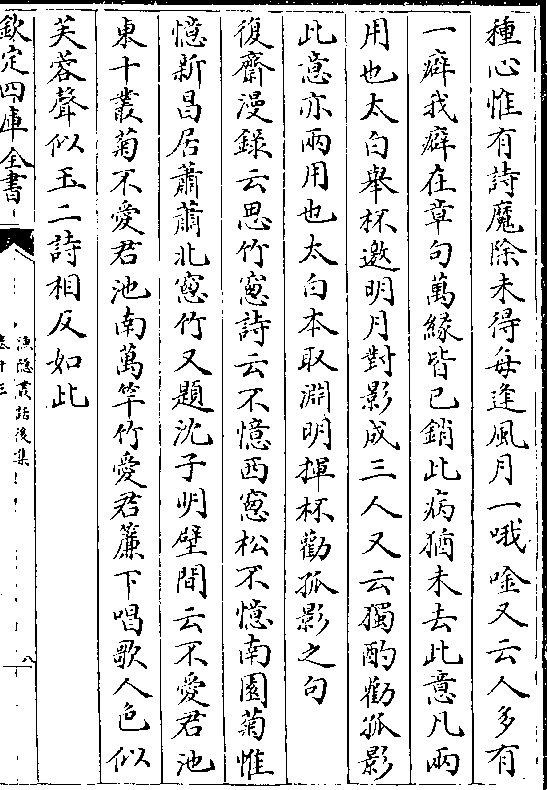 種心惟有詩魔除未得每逢風月一哦唫又云人多有
一癖我癖在章句萬緣皆已銷此病猶未去此意凡兩
用也太白舉杯邀明月對影成三人又云獨酌勸孤影
此意亦兩用也太白本取淵明揮杯勸孤影之句
復齋漫錄云思竹窻詩云不憶西窻松不憶南園菊惟
憶新昌居蕭蕭北窻竹又題沈子明壁間云不愛君池
東十叢菊不愛君池南萬竿竹愛君簾下唱歌人色似
芙蓉聲似玉二詩相反如此
欽定四庫全書
漁隱叢話後集
卷十三
八